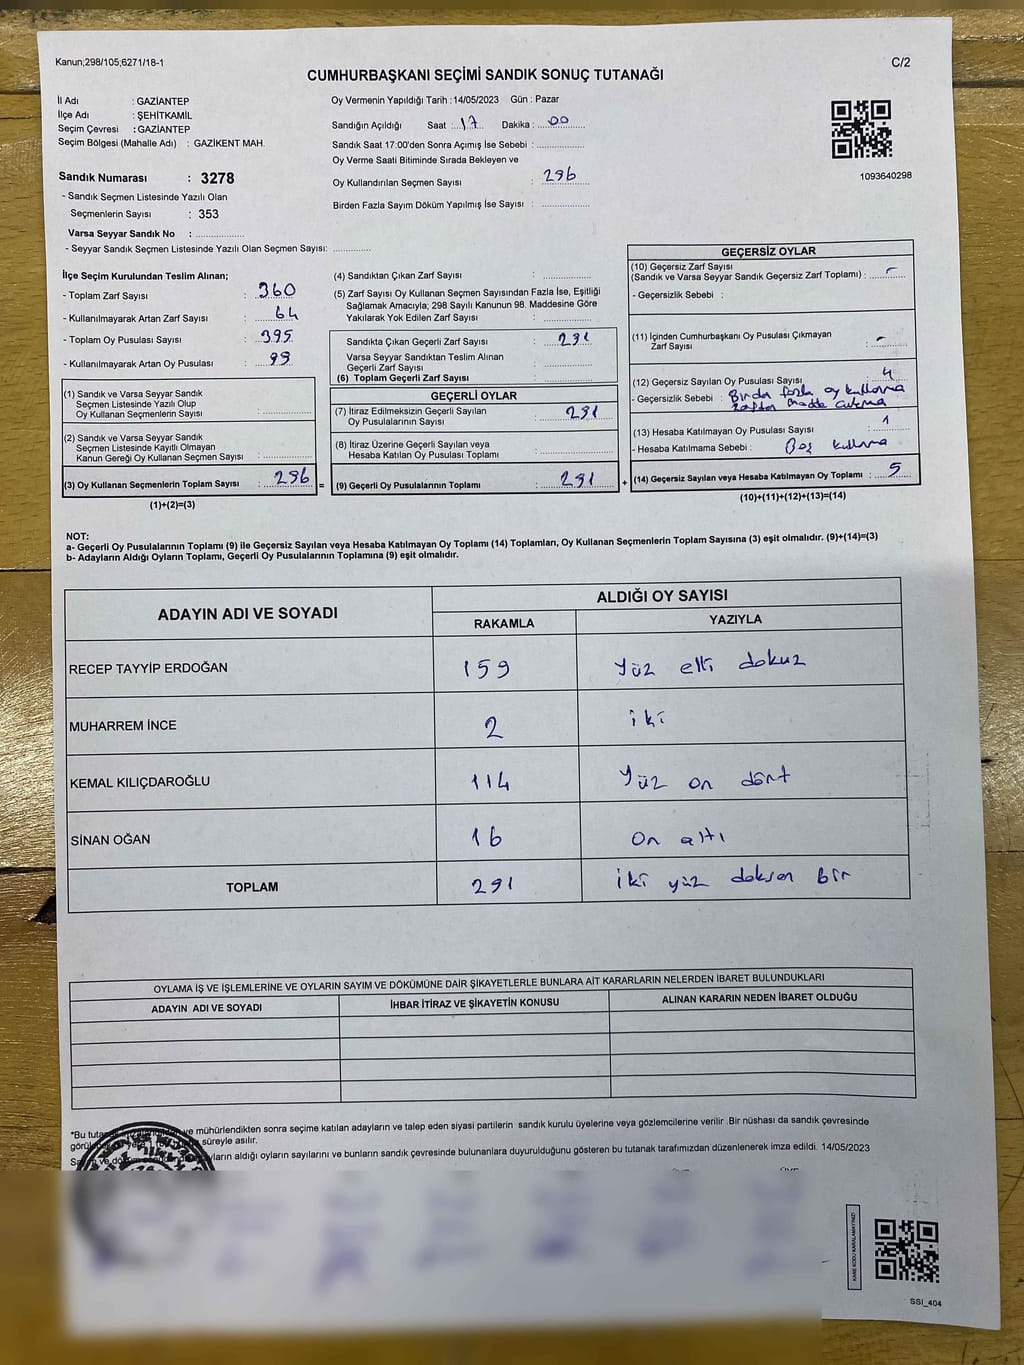 Kanun;298/105;6271/18-1
C/2
CUMHURBAŞKANI SEÇİMİ SANDIK SONUÇ TUTANAĞI
İl Adı : GAZİANTEP
İlçe Adı : ŞEHİTKAMİL
Seçim Çevresi : GAZİANTEP
Seçim Bölgesi (Mahalle Adı) : GAZİKENT MAH.
Sandık Numarası : 3278
- Sandık Seçmen Listesinde Yazılı Olan
Seçmenlerin Sayısı : 353
Varsa Seyyar Sandık No : ..................
- Seyyar Sandık Seçmen Listesinde Yazılı Olan Seçmen Sayısı: ..............
Oy Vermenin Yapıldığı Tarih :14/05/2023 Gün : Pazar
Sandığın Açıldığı Saat : 17 Dakika : 00
Sandık Saat 17.00'den Sonra Açımış İse Sebebi : ..................
Oy Verme Saati Bitiminde Sırada Bekleyen ve
Oy Kullandırılan Seçmen Sayısı : 296
Birden Fazla Sayım Döküm Yapılmış İse Sayısı : ..................
1093640298
İlçe Seçim Kurulundan Teslim Alınan;
- Toplam Zarf Sayısı : 360
- Kullanılmayarak Artan Zarf Sayısı : 64
- Toplam Oy Pusulası Sayısı : 395
- Kullanılmayarak Artan Oy Pusulası : 99
(1) Sandık ve Varsa Seyyar Sandık
Seçmen Listesinde Yazılı Olup
Oy Kullanan Seçmenlerin Sayısı : ..................
(2) Sandık ve Varsa Seyyar Sandık
Seçmen Listesinde Kayıtlı Olmayan
Kanun Gereği Oy Kullanan Seçmen Sayısı : ..................
(3) Oy Kullanan Seçmenlerin Toplam Sayısı : 296 =
(1)+(2)=(3)
(4) Sandıktan Çıkan Zarf Sayısı : ..................
(5) Zarf Sayısı Oy Kullanan Seçmen Sayısından Fazla İse, Eşitliği
Sağlamak Amacıyla; 298 Sayılı Kanunun 98. Maddesine Göre
Yakılarak Yok Edilen Zarf Sayısı : ..................
Sandıkta Çıkan Geçerli Zarf Sayısı : 291
Varsa Seyyar Sandıktan Teslim Alınan
Geçerli Zarf Sayısı : ..................
(6) Toplam Geçerli Zarf Sayısı : ..................
GEÇERLİ OYLAR
(7) İtiraz Edilmeksizin Geçerli Sayılan
Oy Pusulasının Sayısı : 291
(8) İtiraz Üzerine Geçerli Sayılan veya
Hesaba Katılan Oy Pusulası Toplamı : ..................
(9) Geçerli Oy Pusulalarının Toplamı : 291 +
GEÇERSİZ OYLAR
(10) Geçersiz Zarf Sayısı
(Sandık ve Varsa Seyyar Sandık Geçersiz Zarf Toplamı) : -
- Geçersizlik Sebebi :
(11) İçinden Cumhurbaşkanı Oy Pusulası Çıkmayan
Zarf Sayısı : -
(12) Geçersiz Sayılan Oy Pusulası Sayısı : 4
- Geçersizlik Sebebi : Birden fazla oy kullanma
madde
(13) Hesaba Katılmayan Oy Pusulası Sayısı : 1
- Hesaba Katılmama Sebebi : Boş kullanma
(14) Geçersiz Sayılan veya Hesaba Katılmayan Oy Toplamı : 5
(10)+(11)+(12)+(13)=(14)
NOT:
a- Geçerli Oy Pusulalarının Toplamı (9) ile Geçersiz Sayılan veya Hesaba Katılmayan Oy Toplamı (14) Toplamları, Oy Kullanan Seçmenlerin Toplam Sayısına (3) eşit olmalıdır. (9)+(14)=(3)
b- Adayların Aldığı Oyların Toplamı, Geçerli Oy Pusulalarının Toplamına (9) eşit olmalıdır.
ADAYIN ADI VE SOYADI
ALDIĞI OY SAYISI
RAKAMLA YAZIYLA
RECEP TAYYİP ERDOĞAN 159 yüz elli dokuz
MUHARREM İNCE 2 iki
KEMAL KILIÇDAROĞLU 114 yüz on dört
SİNAN OĞAN 16 on altı
TOPLAM 291 iki yüz doksan bir
OYLAMA İŞ VE İŞLEMLERİNE VE OYLARIN SAYIM VE DÖKÜMÜNE DAİR ŞİKAYETLERLE BUNLARA AİT KARARLARIN NELERDEN İBARET BULUNDUKLARI
ADAYIN ADI VE SOYADI İHBAR İTİRAZ VE ŞİKAYETİN KONUSU ALINAN KARARIN NEDEN İBARET OLDUĞU
*Bu ve mühürlendikten sonra seçime katılan adayların ve talep eden siyasi partilerin sandık kurulu üyelerine veya gözlemcilerine verilir .Bir nüshası da sandık çevresinde
süreyle asılır.
aldığı oyların sayılarını ve bunların sandık çevresinde bulunanlara duyurulduğunu gösteren bu tutanak tarafımızdan düzenlenerek imza edildi. 14/05/2023
KARE KODU KARALAMAYINIZ!
SSI_404